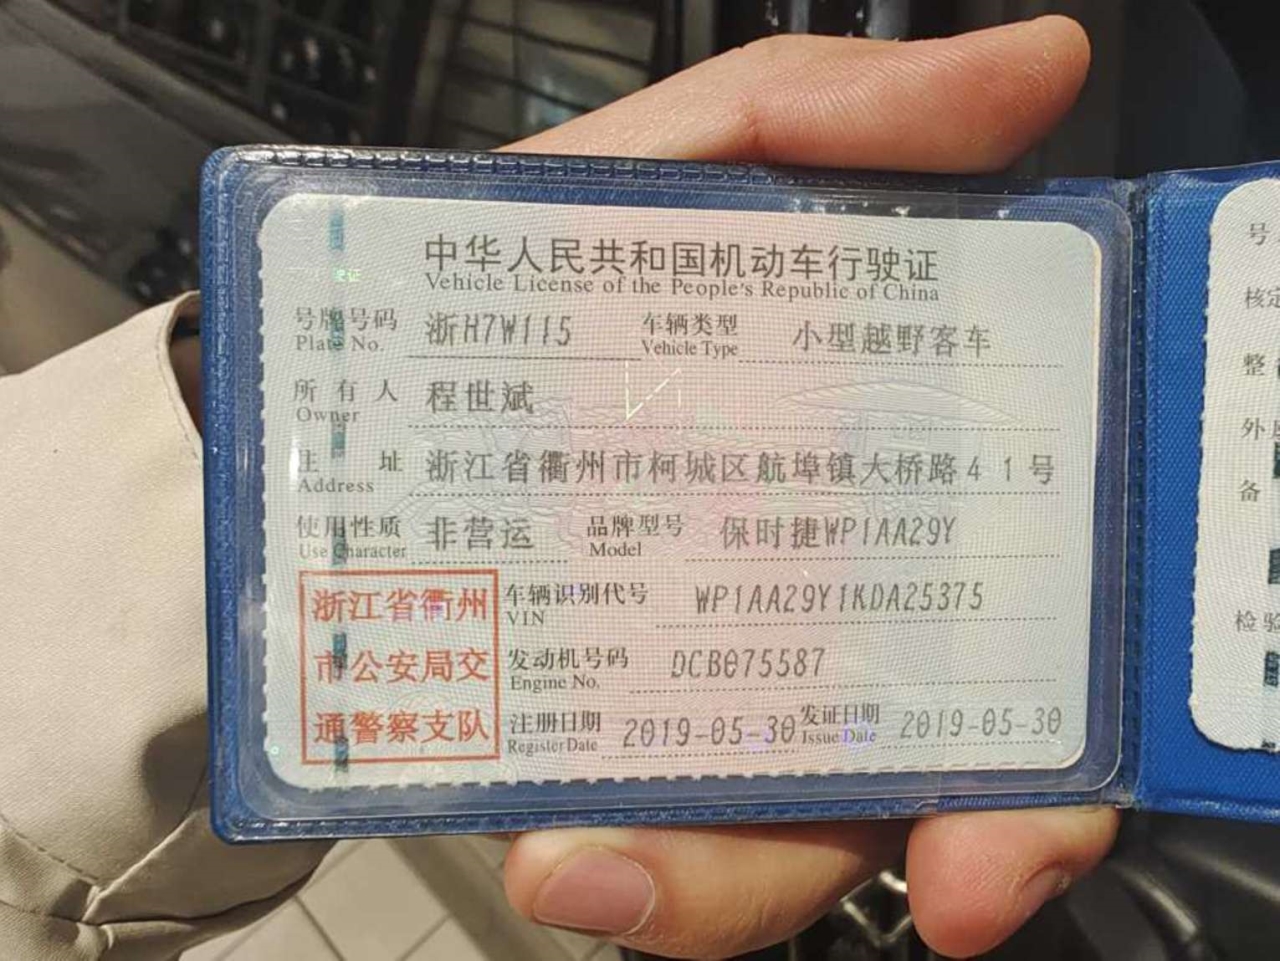 中华人民共和国机动车行驶证
Vehicle License of the People's Republic of China
号牌号码 浙H7W115 车辆类型 小型越野客车
Plate No. Vehicle Type
所有人 程世斌
Owner
住址 浙江省衢州市柯城区航埠镇大桥路41号
Address
使用性质 非营运 品牌型号 保时捷WP1AA29Y
Use Character Model
车辆识别代号 WP1AA29Y1KDA25375
VIN
发动机号码 DCB075587
Engine No.
注册日期 2019-05-30 发证日期 2019-05-30
Register Date Issue Date
浙江省衢州
市公安局交
通警察支队
号
核定
整
外
备
检验